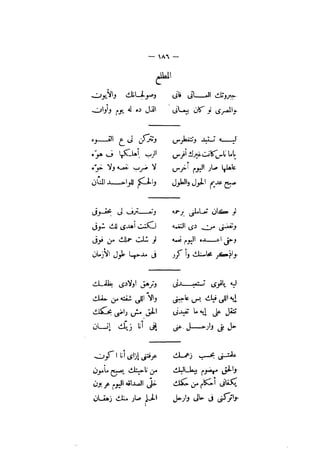 — ١٨٦ —
المطلع
جبروتك المـــانى فانى وصولجـانك والأيوب
والمصرى لو كان بيعانى القل ده له يوم وأوان
ليـــه تستبد وتتغطرس وتتركن لى ع القـــوه
ياما ناس كانت غيرك أفرس الرب أهلكها ف هوّه
عاقلها صار اليوم أخرس لا ضرب نفعه ولا خوّه
صبح عديم الحول والطول والحكم للواحـــد المنان
لو كنان تعاملنى برحمه وتعـــترف لى بحقوق
وتعفينى من دى النقمه لكنت أهدى لك شوق
وحق احـــده اليوم نعمه لو شلت حملك من فوق
واذكر محاسنك وأكرر فى مدحها طول الأزمان
ليه ياقوى تستعبـــدنى وترهق اولادى بظلمك
إيه اللى فيك بس عاجبنى والاّ اللى شفته من حقك
تتقل على ايه ما تفيدنى الحق مش راضى بحكمك
حل بنى وارحـــل عنى إنى أنا زيك إنســان
عاقبتنى بحسب زعمك عرفتنى إزاى أنا أكون
والحق مهضوم بيطالبك من ناحيتك يصبح مأمون
يكفانى أحكام من حكمك خلّى الصداقه اليوم عربون
واتركنى فى حالى وارحل الحلم صار منك زهقان